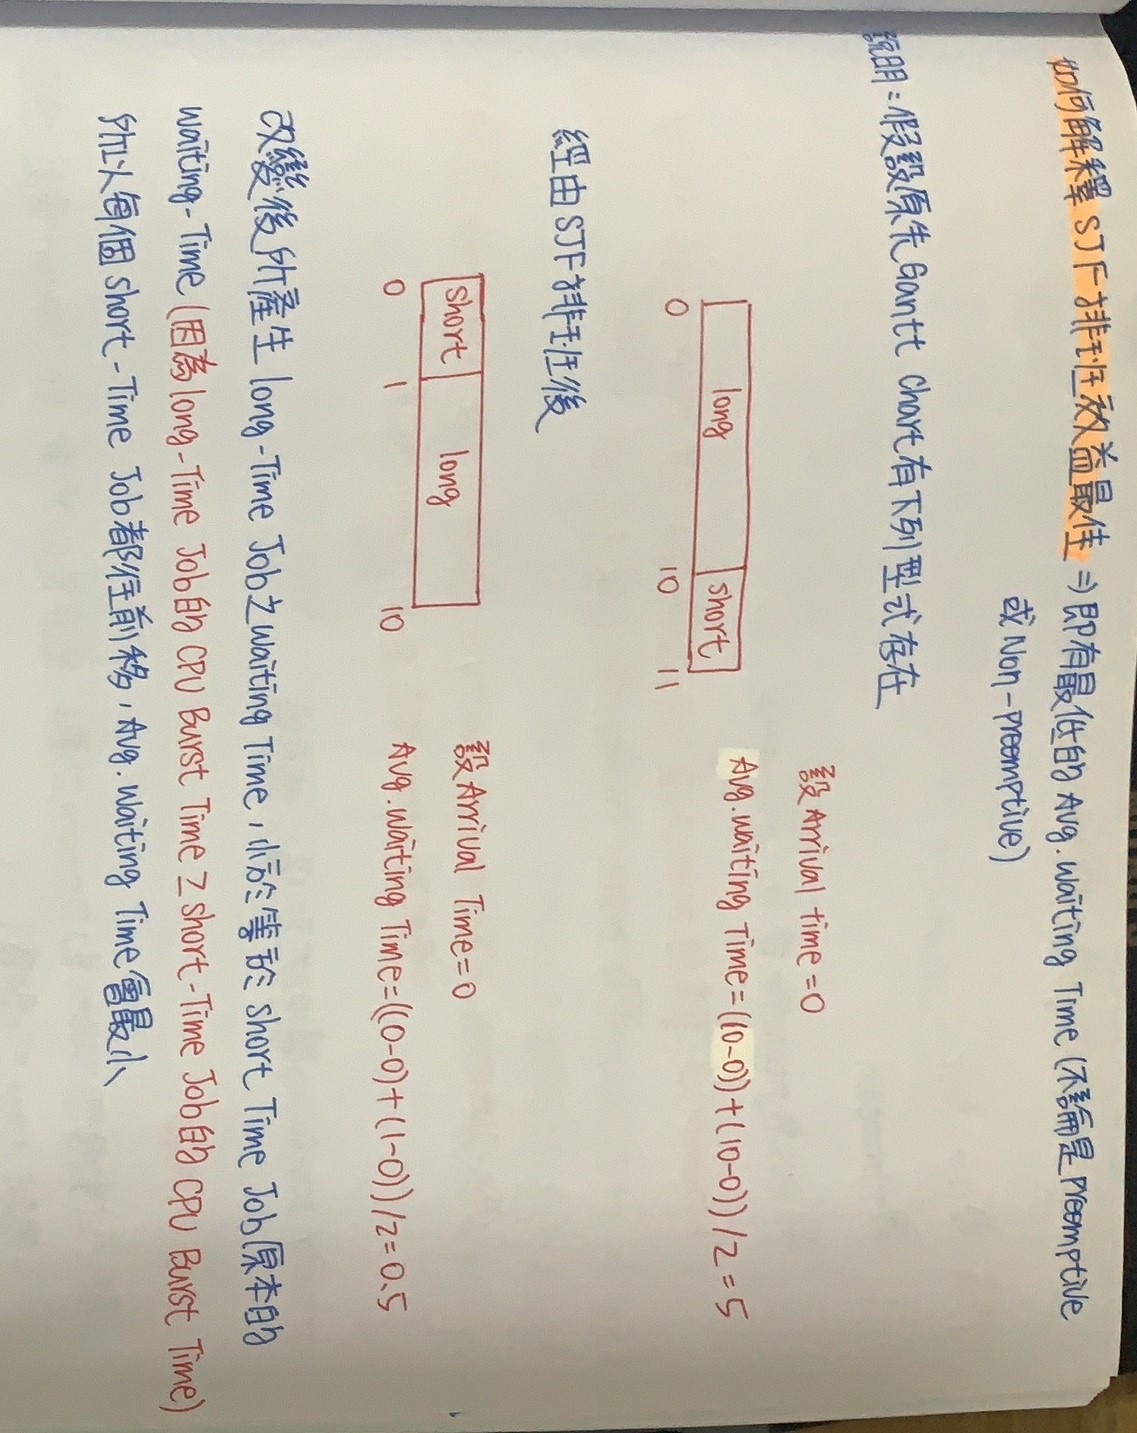 如何解釋SJF排班效益最佳 ⇒ 即有最低的 Avg. Waiting Time (不論是 Preemptive
或 Non-preemptive)
說明:假設原先 Gantt Chart 有下列型式存在
設 Arrival time = 0
Avg. waiting Time = ((0-0))+(10-0))/2 = 5
long short
0 10 11
經由SJF排班後
設 Arrival Time = 0
short long
0 1 10
Avg. Waiting Time = ((0-0)+(1-0))/2 = 0.5
改變後所產生 long-Time Job之Waiting Time,小於等於 short Time Job原本的
Waiting-Time (因為 long-Time Job的 CPU Burst Time ≥ short-Time Job的 CPU Burst Time)
所以每個 short-Time Job都往前移,Avg. Waiting Time會最小